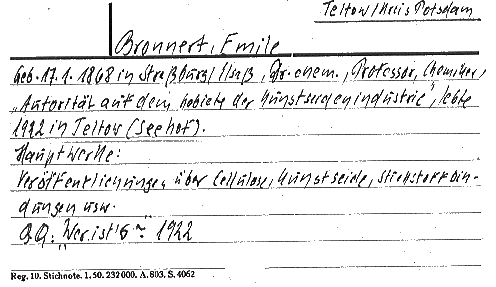 Teltow/Kreis Potsdam
Bronnert, Emile
Geb. 17.1.1868 in Straßburg/Elsaß, Dr. chem., Professor, Chemiker,
"Autorität auf dem Gebiete der Kunstseidenindustrie", lebte
1922 in Teltow (Seehof).
Hauptwerke:
Veröffentlichungen über Cellulose, Kunstseide, Stickstoffbin-
dungen usw.
QQ: "Wer ist's" 1922
Reg. 10. Stichnote. 1. 50. 232000. A. 803. S. 4062